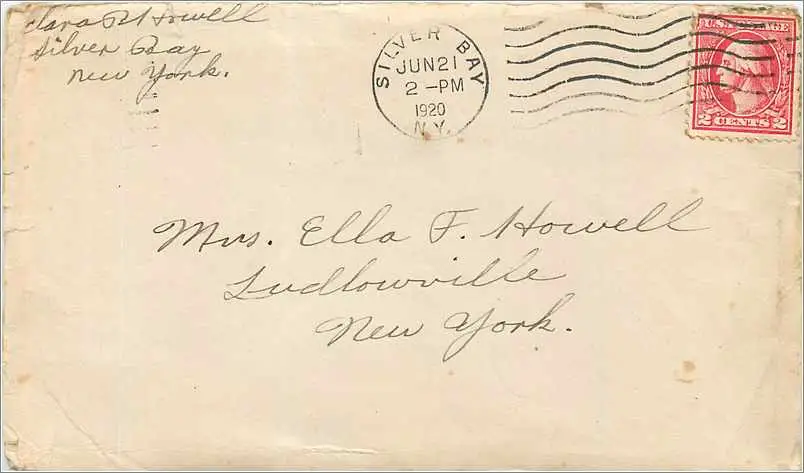 Clara B Howell
Silver Bay
New York.
SILVER BAY
JUN 21
2 -PM
1920
N.Y.
U.S. POSTAGE
2 CENTS 2
Mrs. Ella F. Howell
Ludlowville
New York.